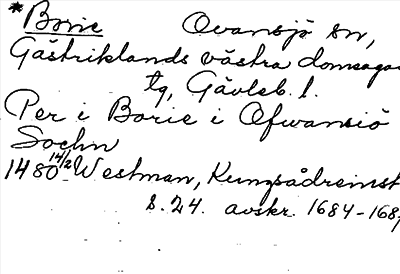 *Borie Ovansjö sn,
Gästriklands västra domsaga
tg, Gävleb. l.
Per i Borie i Ofwansiö
Sochn
1480 14/2 Westman, Kungsådreinst
s. 24. avskr. 1684-168